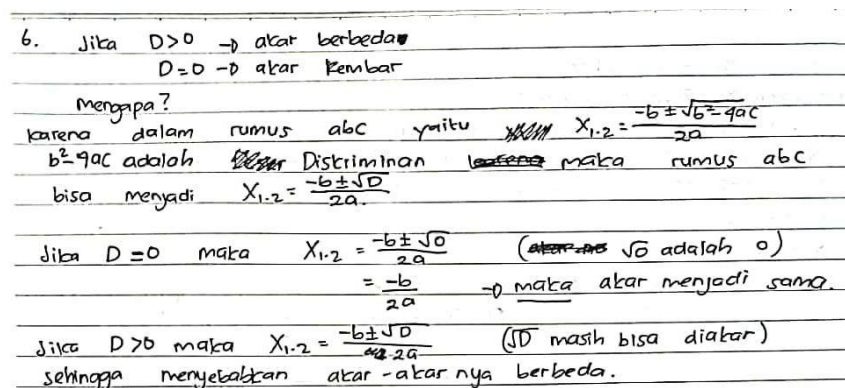 6. Jika D>0 → akar berbeda
D=0 → akar kembar
Mengapa?
karena dalam rumus abc yaitu X₁.₂ = (-b ± √(b²-4ac))/2a
b²-4ac adalah Diskriminan maka rumus abc
bisa menjadi X₁.₂ = (-b ± √D)/2a.
Jika D=0 maka X₁.₂ = (-b ± √0)/2a (√0 adalah 0)
= -b/2a → maka akar menjadi sama.
Jika D>0 maka X₁.₂ = (-b ± √D)/2a (√D masih bisa diakar)
sehingga menyebabkan akar-akar nya berbeda.